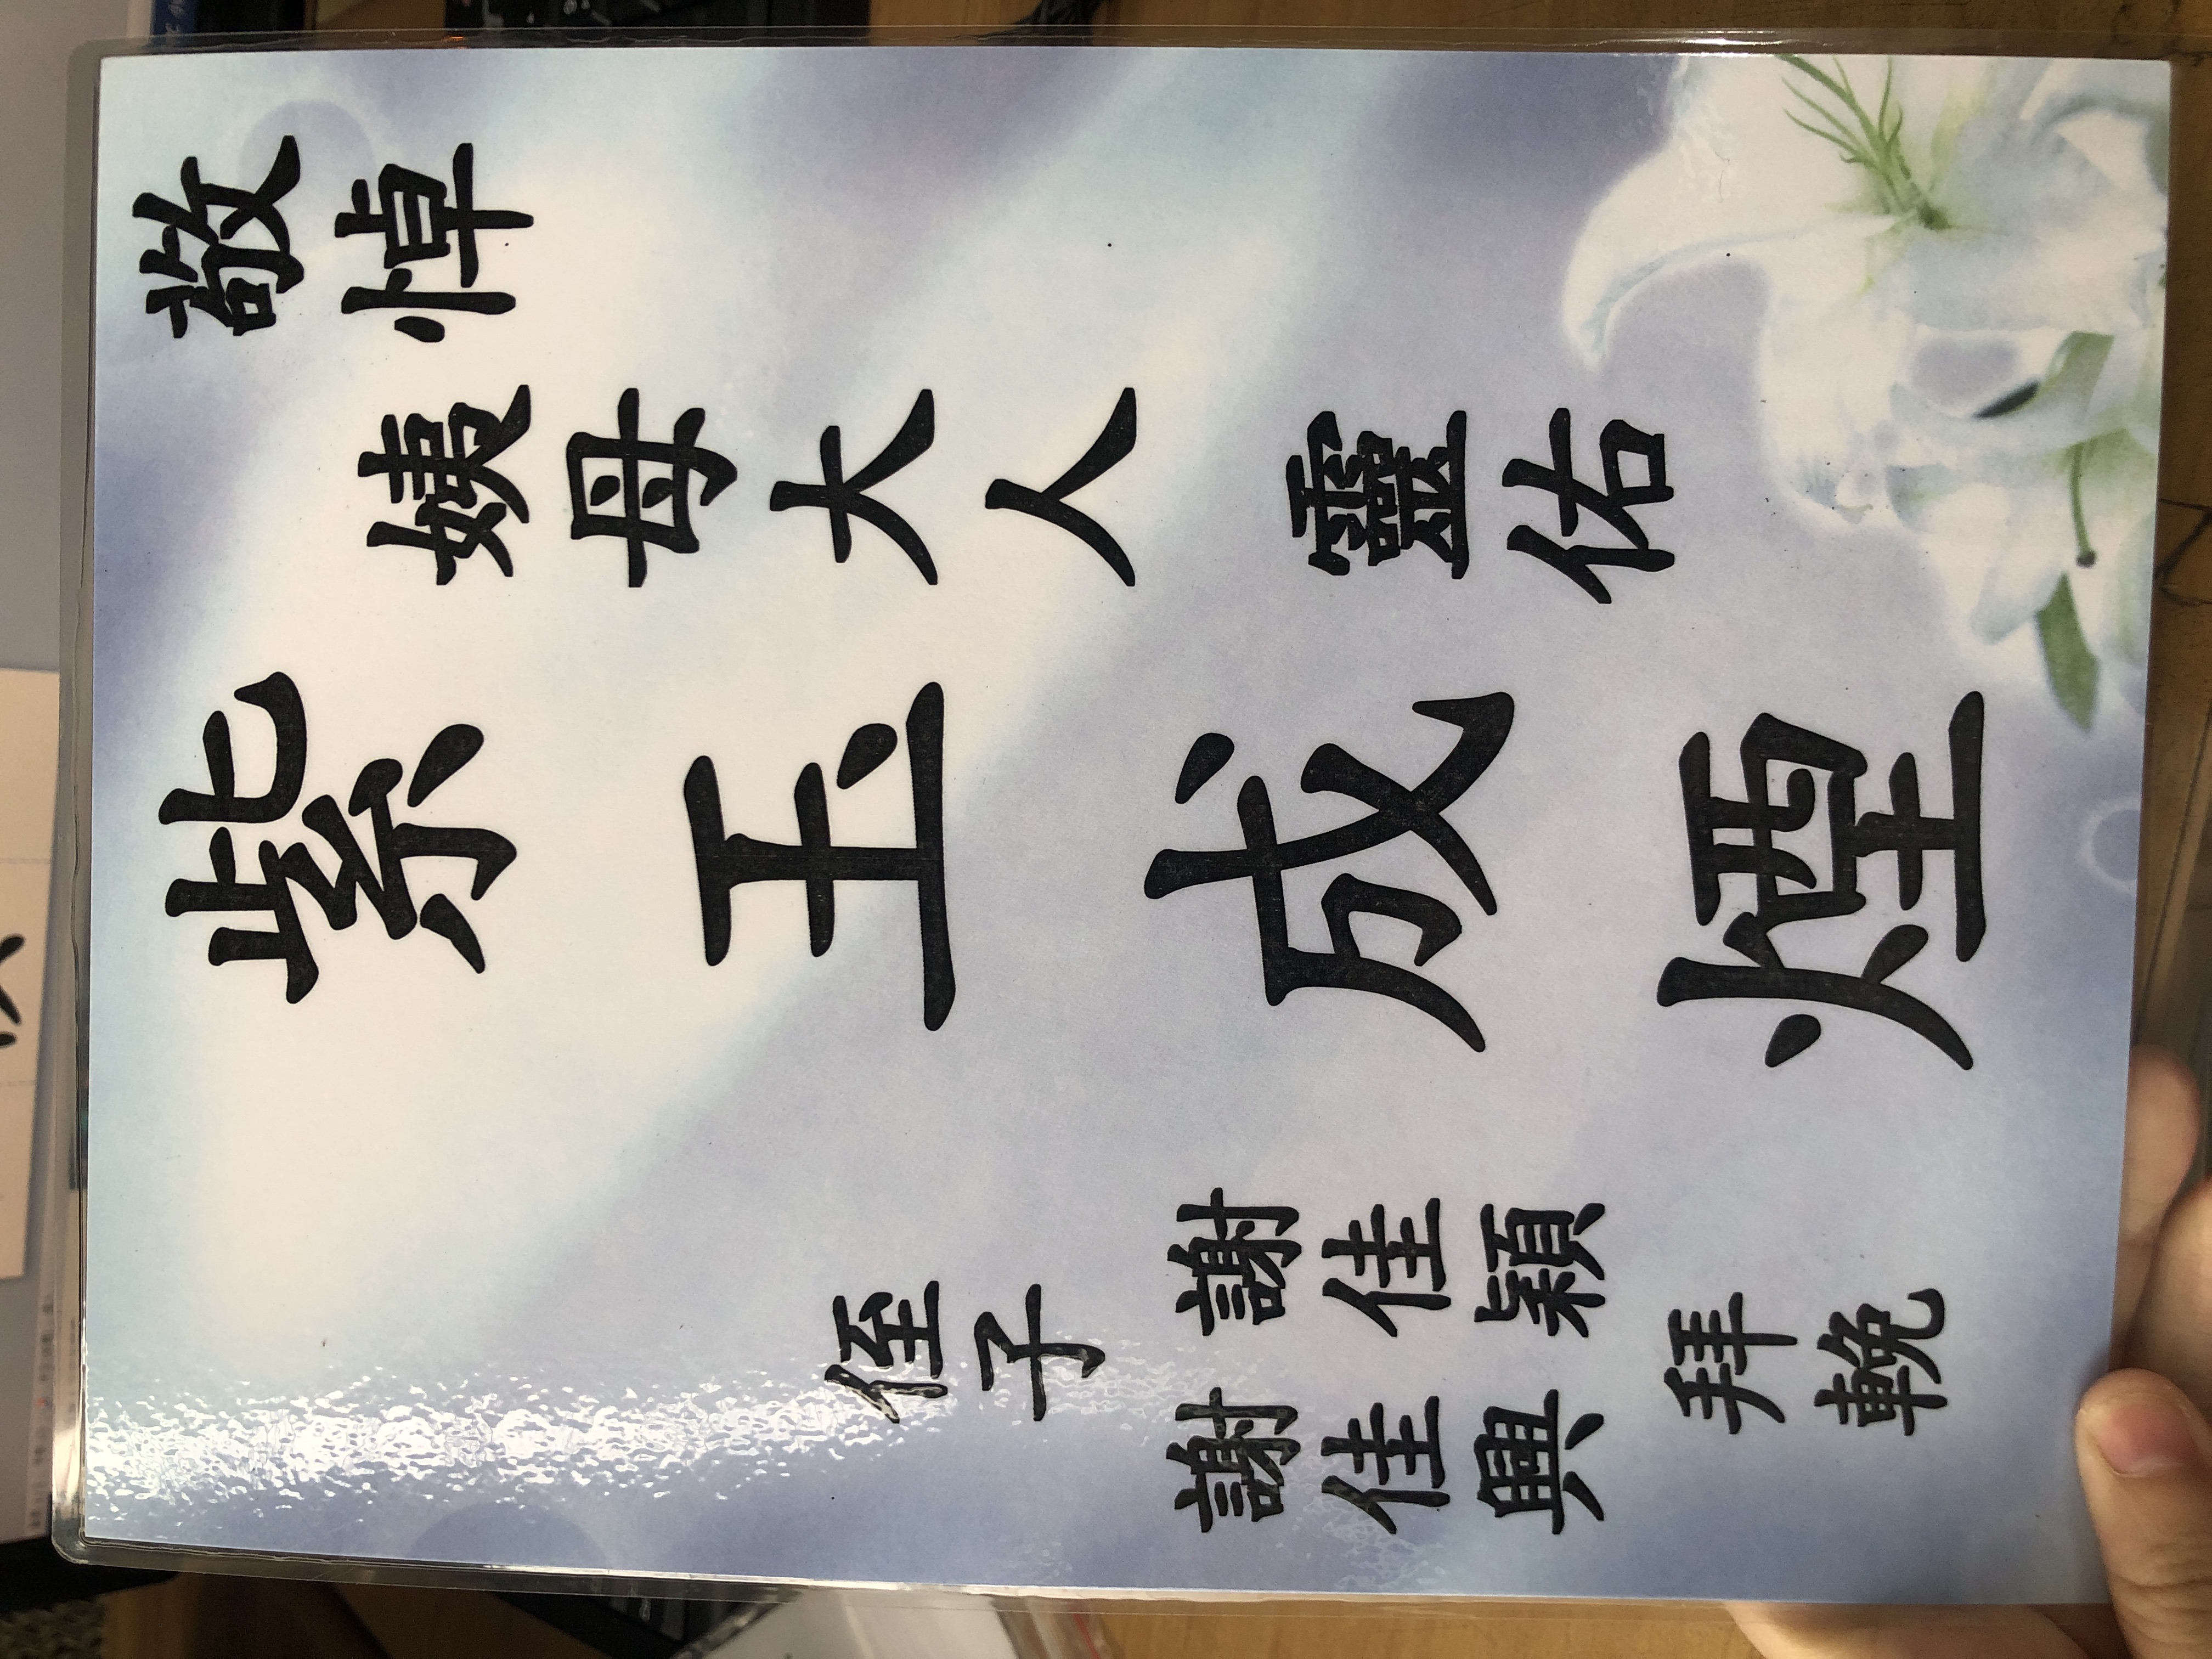 敬悼
母大人 靈佑
紫玉成煙
侄子
謝佳穎
謝佳興
拜輓